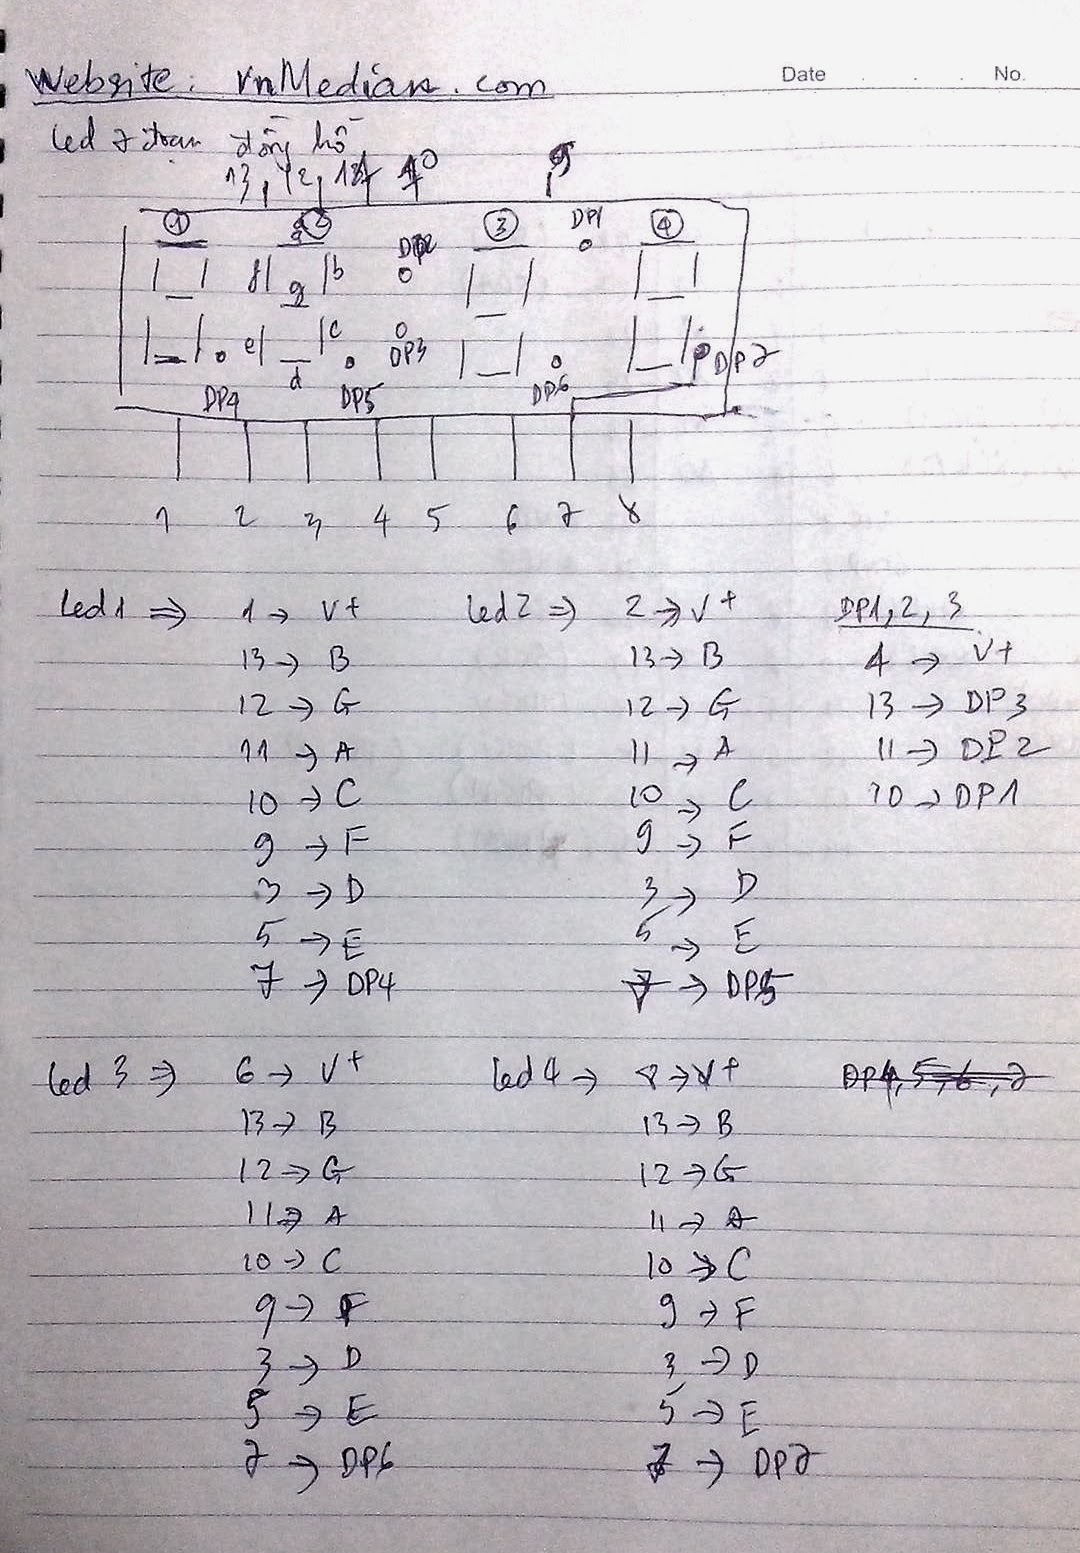 Website: vnMedian.com
Date . . . No.
Led 7 đoạn đồng hồ
13, 12, 11 10 9
1 2 3 DP1 4
DP2
f g b
e c DP3
d DP7
DP4 DP5 DP6
1 2 3 4 5 6 7 8
Led 1 => 1 -> V+ Led 2 => 2 -> V+ DP1, 2, 3
13 -> B 13 -> B 4 -> V+
12 -> G 12 -> G 13 -> DP3
11 -> A 11 -> A 11 -> DP2
10 -> C 10 -> C 10 -> DP1
9 -> F 9 -> F
3 -> D 3 -> D
5 -> E 5 -> E
7 -> DP4 7 -> DP5
Led 3 => 6 -> V+ Led 4 -> 8 -> V+ DP4, 5, 6, 7
13 -> B 13 -> B
12 -> G 12 -> G
11 -> A 11 -> A
10 -> C 10 -> C
9 -> F 9 -> F
3 -> D 3 -> D
5 -> E 5 -> E
7 -> DP6 7 -> DP7